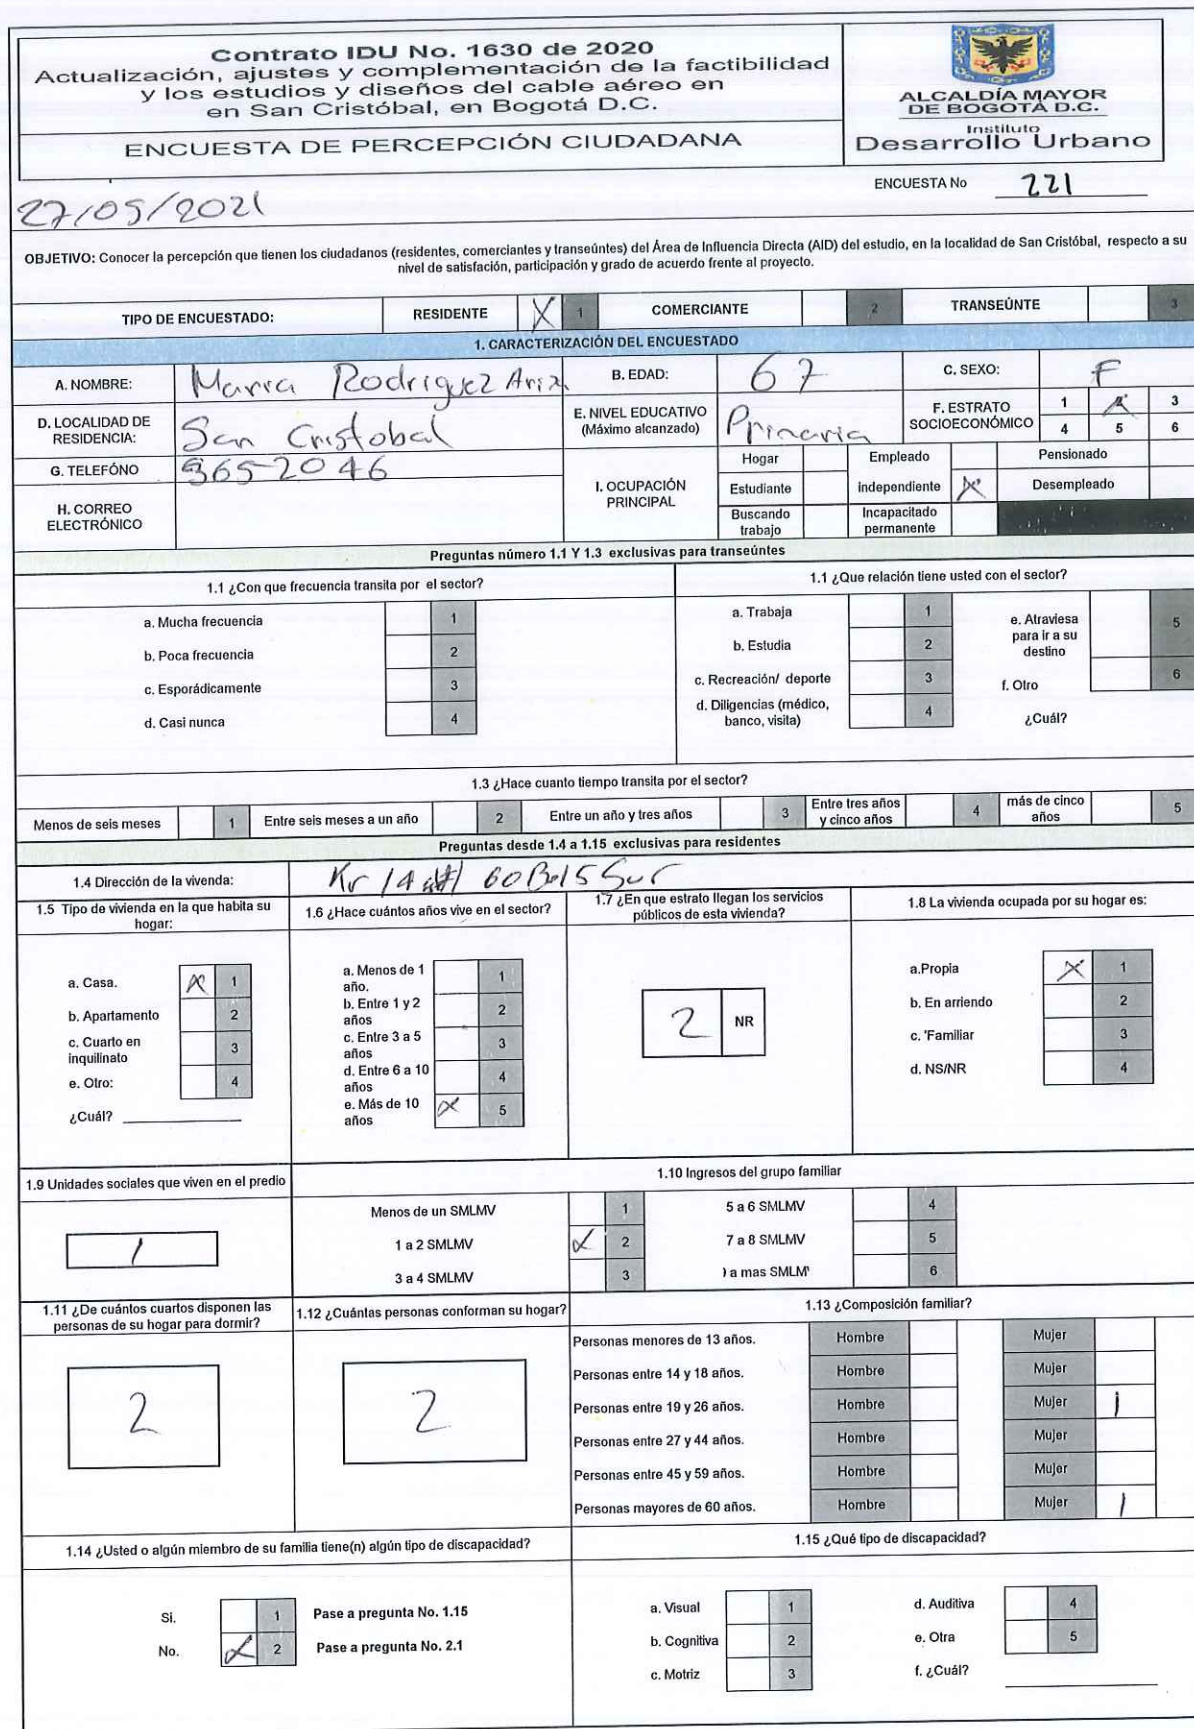 Contrato IDU No. 1630 de 2020
Actualización, ajustes y complementación de la factibilidad
y los estudios y diseños del cable aéreo en
en San Cristóbal, en Bogotá D.C.
ENCUESTA DE PERCEPCIÓN CIUDADANA
ALCALDÍA MAYOR
DE BOGOTÁ D.C.
Instituto
Desarrollo Urbano
ENCUESTA No 221
27/05/2021
OBJETIVO: Conocer la percepción que tienen los ciudadanos (residentes, comerciantes y transeúntes) del Área de Influencia Directa (AID) del estudio, en la localidad de San Cristóbal, respecto a su
nivel de satisfacción, participación y grado de acuerdo frente al proyecto.
TIPO DE ENCUESTADO: RESIDENTE X 1 COMERCIANTE 2 TRANSEÚNTE 3
1. CARACTERIZACIÓN DEL ENCUESTADO
A. NOMBRE: Maria Rodriguez Ariza B. EDAD: 67 C. SEXO: F
D. LOCALIDAD DE RESIDENCIA: San Cristobal E. NIVEL EDUCATIVO (Máximo alcanzado) Primaria F. ESTRATO SOCIOECONÓMICO 1 X 3
4 5 6
G. TELEFÓNO 3652046
H. CORREO ELECTRÓNICO
I. OCUPACIÓN PRINCIPAL
Hogar Empleado Pensionado
Estudiante independiente X Desempleado
Buscando trabajo Incapacitado permanente
Preguntas número 1.1 Y 1.3 exclusivas para transeúntes
1.1 ¿Con que frecuencia transita por el sector?
a. Mucha frecuencia 1
b. Poca frecuencia 2
c. Esporádicamente 3
d. Casi nunca 4
1.1 ¿Que relación tiene usted con el sector?
a. Trabaja 1
b. Estudia 2
c. Recreación/ deporte 3
d. Diligencias (médico, banco, visita) 4
e. Atraviesa para ir a su destino 5
f. Otro 6
¿Cuál?
1.3 ¿Hace cuanto tiempo transita por el sector?
Menos de seis meses 1 Entre seis meses a un año 2 Entre un año y tres años 3 Entre tres años y cinco años 4 más de cinco años 5
Preguntas desde 1.4 a 1.15 exclusivas para residentes
1.4 Dirección de la vivenda: Kr 14 60 15 Sur
1.5 Tipo de vivienda en la que habita su hogar:
a. Casa. X 1
b. Apartamento 2
c. Cuarto en inquilinato 3
e. Otro: 4
¿Cuál?
1.6 ¿Hace cuántos años vive en el sector?
a. Menos de 1 año. 1
b. Entre 1 y 2 años 2
c. Entre 3 a 5 años 3
d. Entre 6 a 10 años 4
e. Más de 10 años X 5
1.7 ¿En que estrato llegan los servicios públicos de esta vivienda?
2 NR
1.8 La vivienda ocupada por su hogar es:
a.Propia X 1
b. En arriendo 2
c. 'Familiar 3
d. NS/NR 4
1.9 Unidades sociales que viven en el predio
1
1.10 Ingresos del grupo familiar
Menos de un SMLMV 1 5 a 6 SMLMV 4
1 a 2 SMLMV X 2 7 a 8 SMLMV 5
3 a 4 SMLMV 3 ) a mas SMLM' 6
1.11 ¿De cuántos cuartos disponen las personas de su hogar para dormir?
2
1.12 ¿Cuántas personas conforman su hogar?
2
1.13 ¿Composición familiar?
Personas menores de 13 años. Hombre Mujer
Personas entre 14 y 18 años. Hombre Mujer
Personas entre 19 y 26 años. Hombre Mujer 1
Personas entre 27 y 44 años. Hombre Mujer
Personas entre 45 y 59 años. Hombre Mujer
Personas mayores de 60 años. Hombre Mujer 1
1.14 ¿Usted o algún miembro de su familia tiene(n) algún tipo de discapacidad?
Si. 1 Pase a pregunta No. 1.15
No. X 2 Pase a pregunta No. 2.1
1.15 ¿Qué tipo de discapacidad?
a. Visual 1 d. Auditiva 4
b. Cognitiva 2 e. Otra 5
c. Motriz 3 f. ¿Cuál?